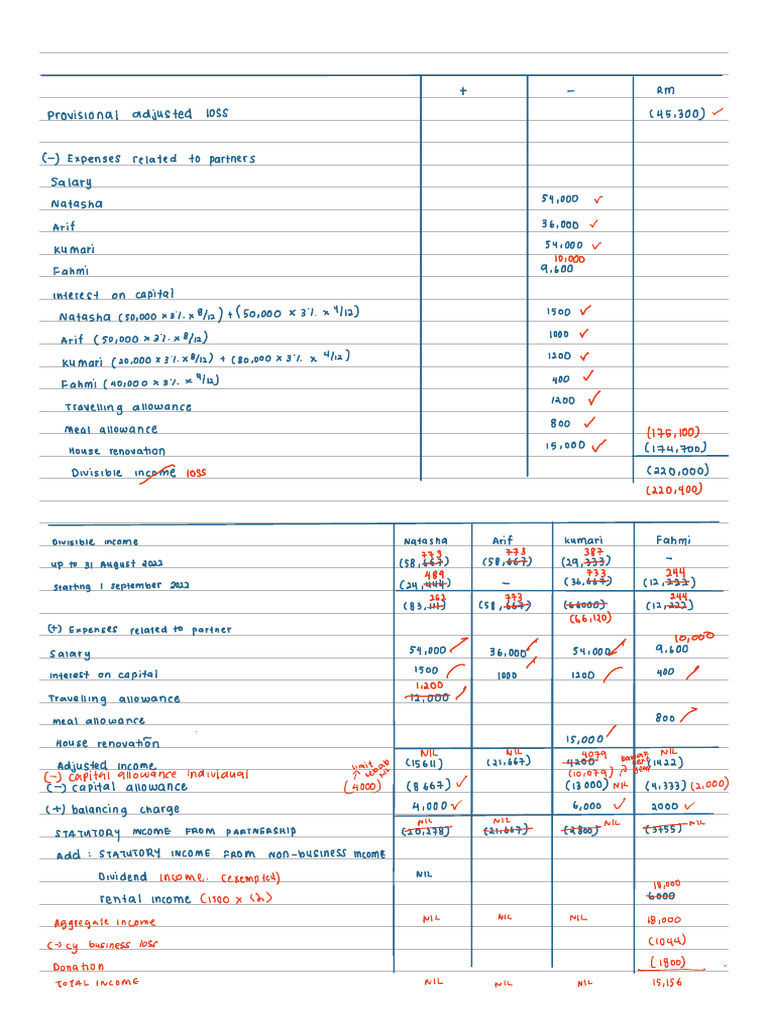 + - RM
Provisional adjusted loss (45,300) ✓
(-) Expenses related to partners
Salary
Natasha 54,000 ✓
Arif 36,000 ✓
Kumari 54,000 ✓
10,000
Fahmi 9,600
Interest on capital
Natasha (50,000 × 3% × 8/12) + (50,000 × 3% × 4/12) 1500 ✓
Arif (50,000 × 3% × 8/12) 1000 ✓
Kumari (20,000 × 3% × 8/12) + (80,000 × 3% × 4/12) 1200 ✓
Fahmi (40,000 × 3% × 4/12) 400 ✓
Travelling allowance 1200 ✓
Meal allowance 800 ✓ (175,100)
House renovation 15,000 ✓ (174,700)
Divisible income loss (220,000)
(220,400)
Divisible income Natasha Arif Kumari Fahmi
773 773 387
up to 31 August 2022 (58,667) (58,667) (29,333) -
489 733 244
Starting 1 september 2022 (24,444) - (36,667) (12,222)
262 773 244
(83,111) (58,667) (66000) (12,222)
(66,120)
(+) Expenses related to partner
10,000
Salary 54,000 36,000 54,000 9,600
Interest on capital 1500 1000 1200 400
1,200
Travelling allowance 12,000
meal allowance 800
House renovation 15,000
NIL NIL 4079 NIL
Adjusted Income (15611) (21,667) 4200 (1422)
limit sebab NIL
(-) Capital allowance individual (4000) (10,079) next year
(-) capital allowance (8667) ✓ (13000) NIL (4,333) (2,000)
(+) balancing charge 4,000 ✓ 6,000 ✓ 2000 ✓
NIL NIL NIL NIL
STATUTORY INCOME FROM PARTNERSHIP (20,278) (21,667) (2800) (3755)
Add : STATUTORY INCOME FROM NON-BUSINESS INCOME
Dividend income. (exempted) NIL
18,000
rental income (1500 × 12) 6000
Aggregate income NIL NIL NIL 18,000
(-) cy business loss (1044)
Donation (1800)
TOTAL INCOME NIL NIL NIL 15,156